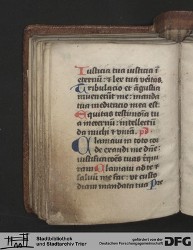 Iusticia tua iusticia i
eternū: ⁊ lex tua veritas.
Tribulacio et āgustia
inuenerūt me: manda
ta tua meditacio mea est.
Equitas testimonia tu
a in eternū: intellectū
da michi ⁊ viuā. ps
Clamaui in toto cor
de exaudi me dn̄e:
iustificaciōes tuas requi
ram. Clamaui ad te
saluū me fac: vt custo
diam mandata tua. Pre
Stadtbibliothek
und Stadtarchiv Trier
gefördert von der
Deutschen Forschungsgemeinschaft
DFG